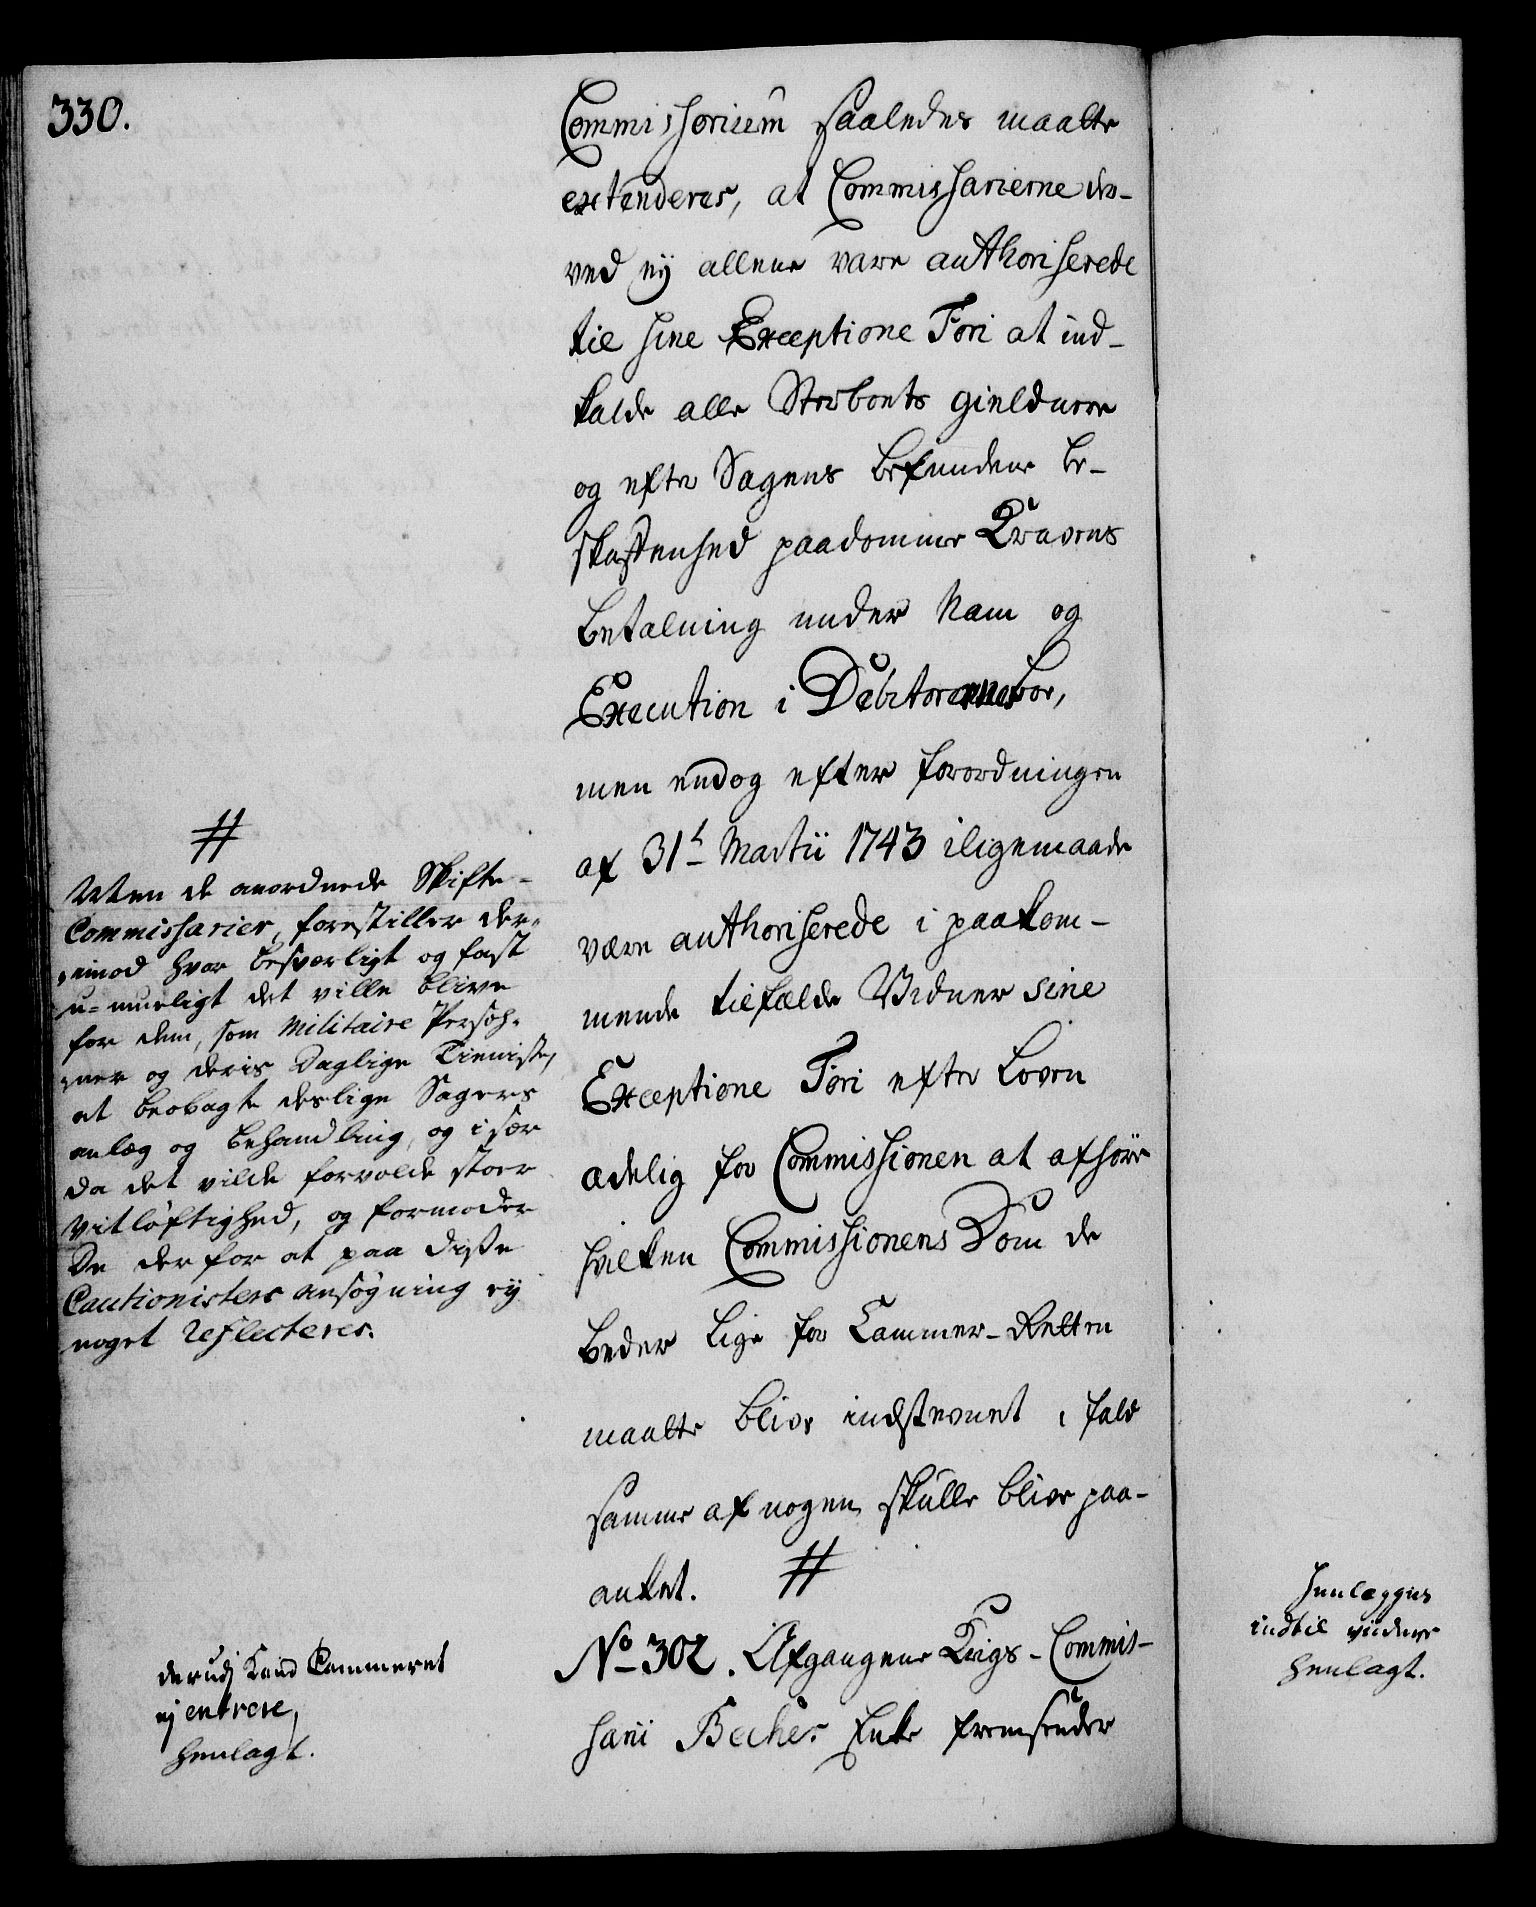 330.
Commissorium saaledes maatte
extenderes, at Commissarierne der-
ved ej allene vare authoriserede
til sine Exceptione Fori at ind-
kalde alle Sterboets gieldnere
og efter Sagens befundene be-
skaffenhed paadømme Kravens
betaling under Nam og
Execution i Debitorernes boe,
men endog efter forordningen
af 31t Martii 1743 iligemaade
være authoriserede i paakom-
mende tilfælde Vidner sine
Exceptione Fori efter Loven
ædelig for Commissionen at afhøre
hvilken Commissionens Dom de
beder lige for Cammer-Retten
maatte blive indstevnet i fald
samme af nogen skulle blive paa-
anket. #
#
Men de anordnede Skifte-
Commissarier, forestiller der-
imod hvor besværligt og fast
u-mueligt det ville blive
for dem, som Militaire Persoh-
ner og deris Daglige Tieniste,
at beobagte deslige Sagers
anlæg og behandling, og i sær
da det vilde forvolde stoer
Vitløftighed, og formoder
De derfor at paa disse
Cautionisters ansøgning ej
noget reflecteres.
No 302. Afgangene Krigs-Commis-
sarii Becher Enke fremsender
derudj Kand Cammeret
ej entrere,
henlagt.
Henlægges
indtil viidere
henlagt.